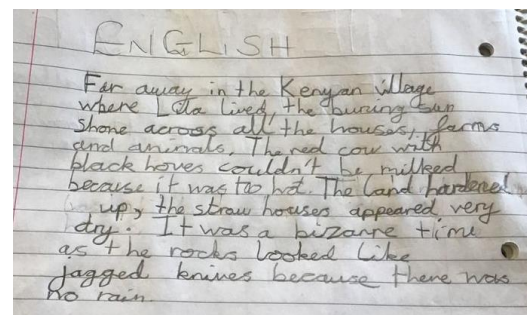 ENGLISH
Far away in the Kenyan village
where Lola lived, the buring sun
shone across all the houses, farms
and animals. The red cow with
black hoves couldn't be milked
because it was too hot. The land hardened
up, the straw houses appeared very
dry. It was a bizarre time
as the rocks looked like
jagged knives because there was
no rain.